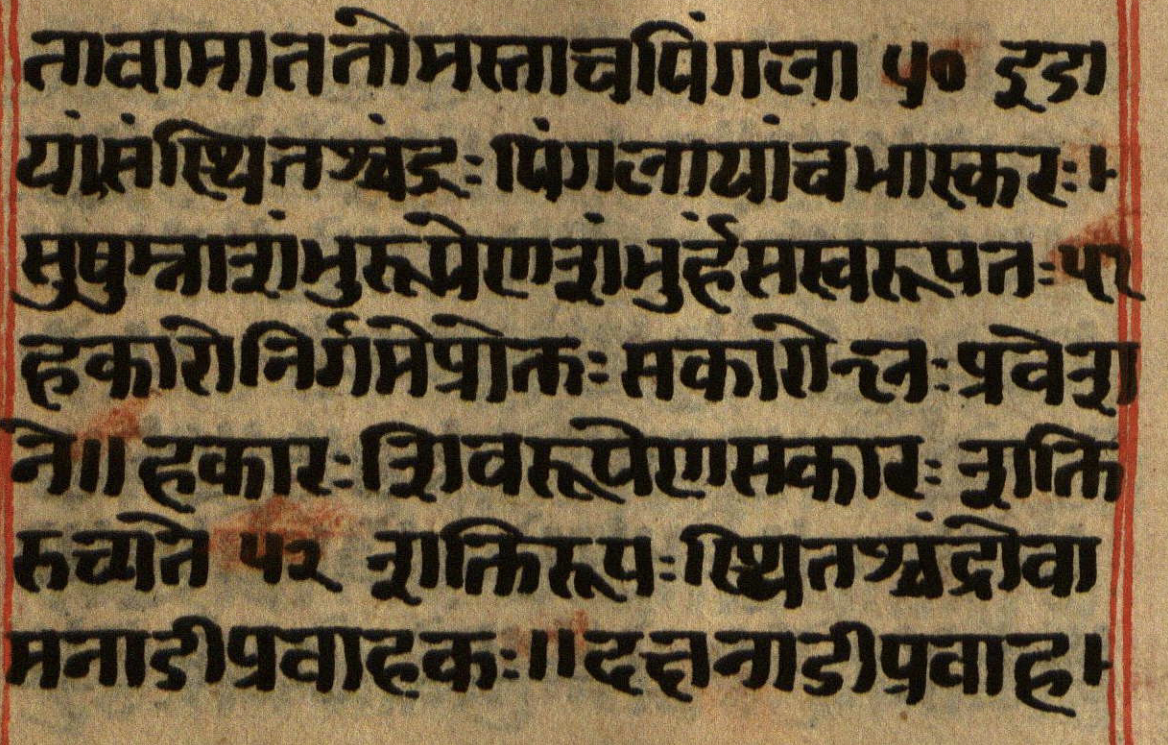 तावामाततोमस्ताचपिंगला ५० इडा
यांसंस्थितश्चंद्रः पिंगलायांचभास्करः।
सुषुम्नाशंभुरूपेणशंभुर्हंसस्वरूपतः५१
हकारोनिर्गमेप्रोक्तः सकारोन्तः प्रवेश
ने॥ हकारः शिवरूपेणसकारः शक्ति
रुच्यते ५२ शक्तिरूपः स्थितश्चंद्रोवा
मनाडीप्रवाहकः॥ दक्षनाडीप्रवाह।